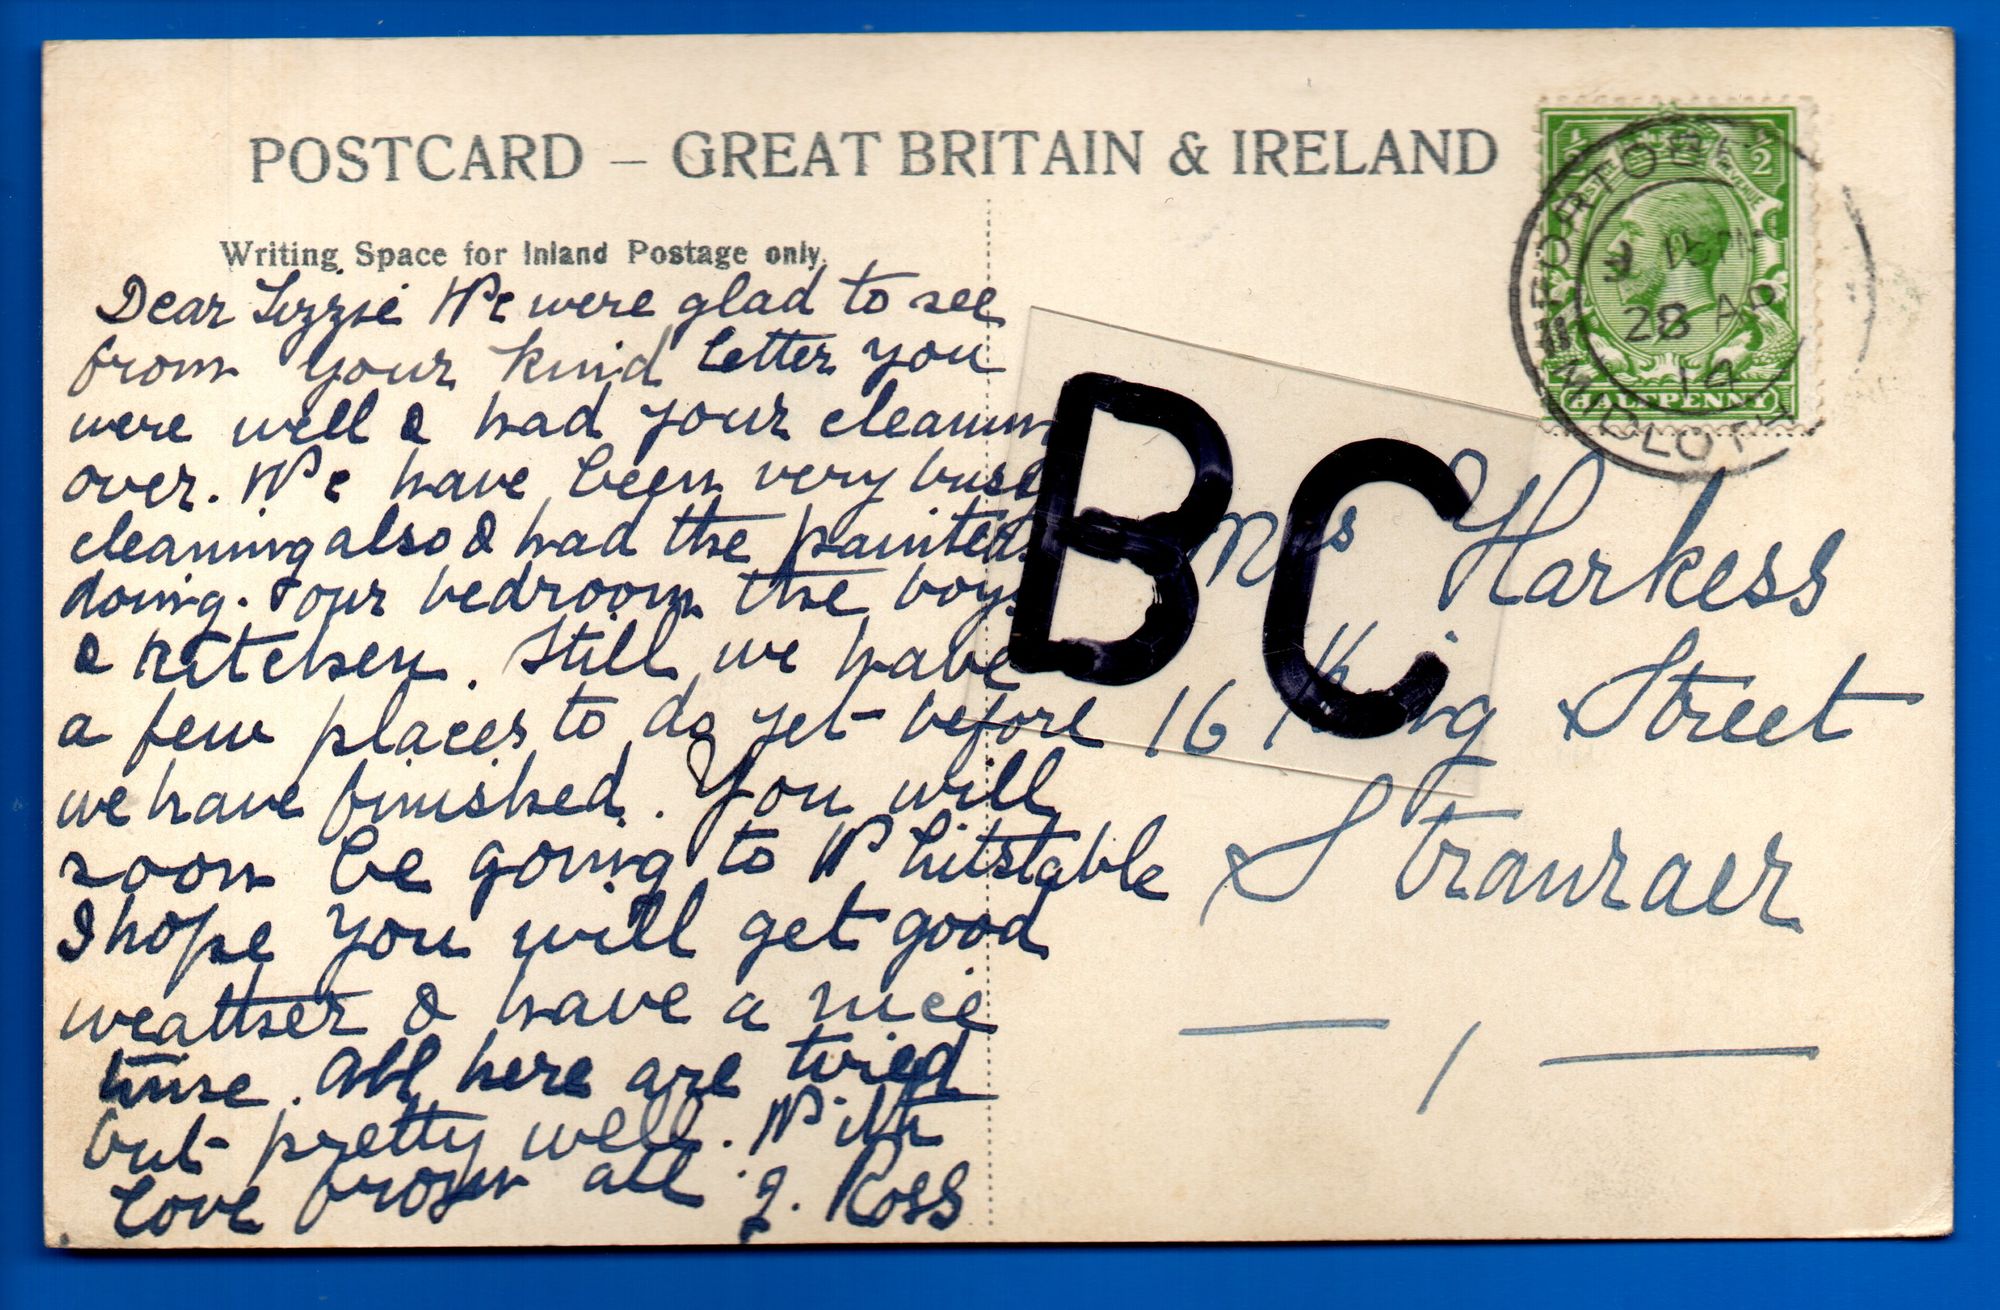 POSTCARD – GREAT BRITAIN & IRELAND
Writing Space for Inland Postage only.
Dear Lizzie We were glad to see
from your kind letter you
were well & had your cleaning
over. We have been very busy
cleaning also & had the painters
doing. our bedroom the boys
& kitchen. Still we have
a few places to do yet before
we have finished. You will
soon be going to Whitstable
I hope you will get good
weather & have a nice
time. All here are tired
but pretty well. With
love from all J. Ross
BC
Mrs Harkess
16 King Street
Stranraer
PORTOBELLO
MIDLOTHIAN
28 AP
14
POSTAGE REVENUE
½ ½
HALFPENNY